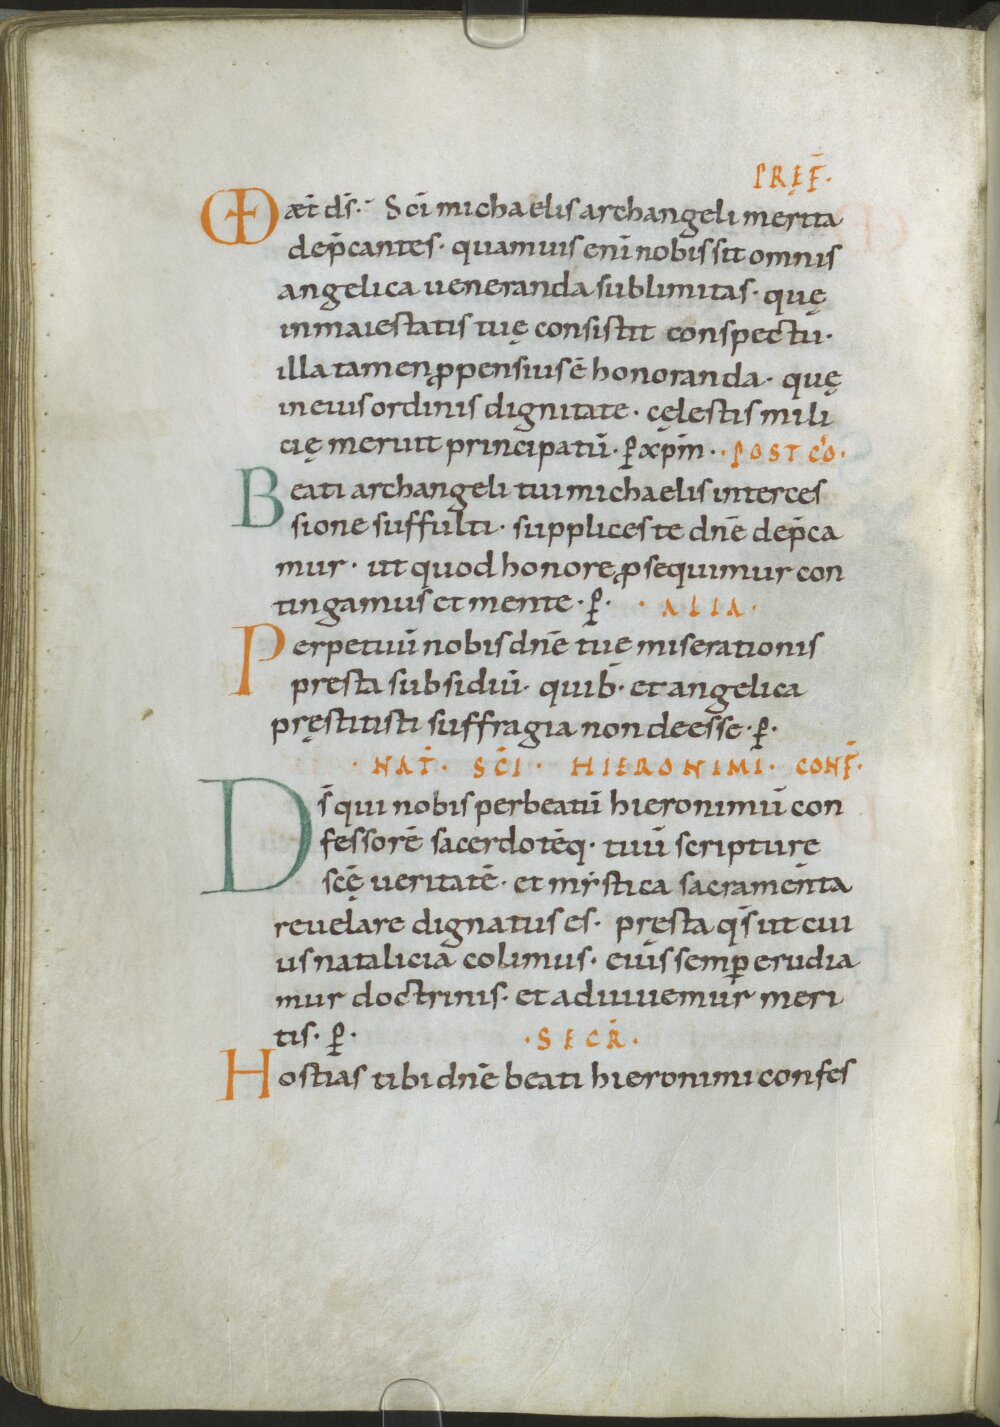 PRĘF̄.
VD æt̄ ds̄. Sc̄i michaelis archangeli merita
dep̄cantes. quamuis enī nobis sit omnis
angelica ueneranda sublimitas. quę
in maiestatis tuę consistit conspectu.
illa tamen ꝓpensius ē honoranda. quę
in eius ordinis dignitate. cęlestis mili
cię meruit principatū. ꝑ xp̄m. POST CO.
Beati archangeli tui michaelis interces
sione suffulti. supplices te dn̄e dep̄ca
mur. ut quod honore ꝓsequimur con
tingamus et mente. ꝑ. ALIA.
Perpetuū nobis dn̄e tuę miserationis
presta subsidiū. quib. et angelica
pręstitisti suffragia non deesse. ꝑ.
NAT̄. SC̄I. HIERONIMI. CONF̄.
Ds̄ qui nobis per beatū hieronimū con
fessorē sacerdotēq. tuū scripture
scę̄ ueritatē. et mẏstica sacramenta
reuelare dignatus es. pręsta qs̄ ut cui
us natalicia colimus. eius semꝑ erudia
mur doctrinis. et adiuuemur meri
tis. ꝑ. SECR̄.
Hostias tibi dn̄e beati hieronimi confes